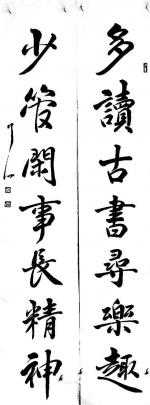 多讀古書尋樂趣
少管閑事長精神